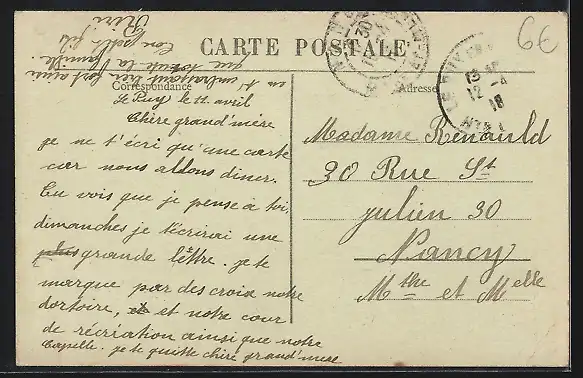 CARTE POSTALE
Correspondance
Adresse
6€
Le Puy le 11 avril
Chère grand'mère
je ne t'écri qu'une carte
car nous allons diner.
Tu vois que je pense à toi,
dimanches je t'écrirai une
plus grande lettre. je te
marque par des croix notre
dortoire, et et notre cour
de récréation ainsi que notre
chapelle. je te quitte chère grand'mère
en t'embrassant bien fort ainsi
que toute la famille.
Ton petit fils
Madame Renauld
30 Rue St
julien 30
Nancy
Mthe et Melle